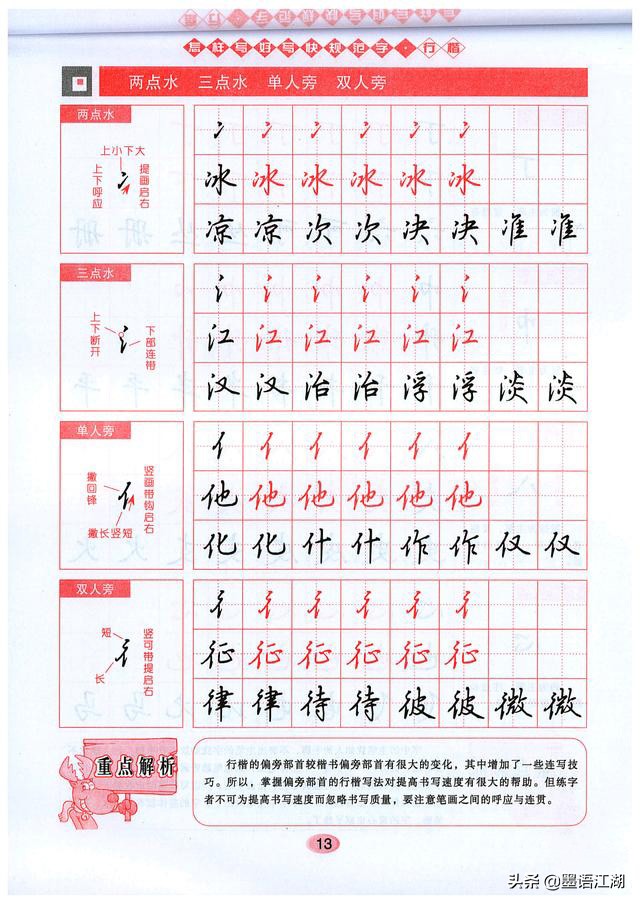 怎样写好写快规范字·行楷
两点水 三点水 单人旁 双人旁
两点水
上小下大
上下呼应
提画启右
冫 冫 冫 冫 冫 冫
冰 冰 冰 冰 冰 冰
凉 凉 次 次 决 决 准 准
三点水
上下断开
下部连带
氵 氵 氵 氵 氵 氵
江 江 江 江 江 江
汉 汉 治 治 浮 浮 淡 淡
单人旁
撇回锋
竖画带钩启右
撇长竖短
亻 亻 亻 亻 亻 亻
他 他 他 他 他 他
化 化 什 什 作 作 仅 仅
双人旁
短
长
竖可带提启右
彳 彳 彳 彳 彳 彳
征 征 征 征 征 征
律 律 待 待 彼 彼 微 微
重点解析
行楷的偏旁部首较楷书偏旁部首有很大的变化，其中增加了一些连写技
巧。所以，掌握偏旁部首的行楷写法对提高书写速度有很大的帮助。但练字
者不可为提高书写速度而忽略书写质量，要注意笔画之间的呼应与连贯。
13
头条 @墨语江湖